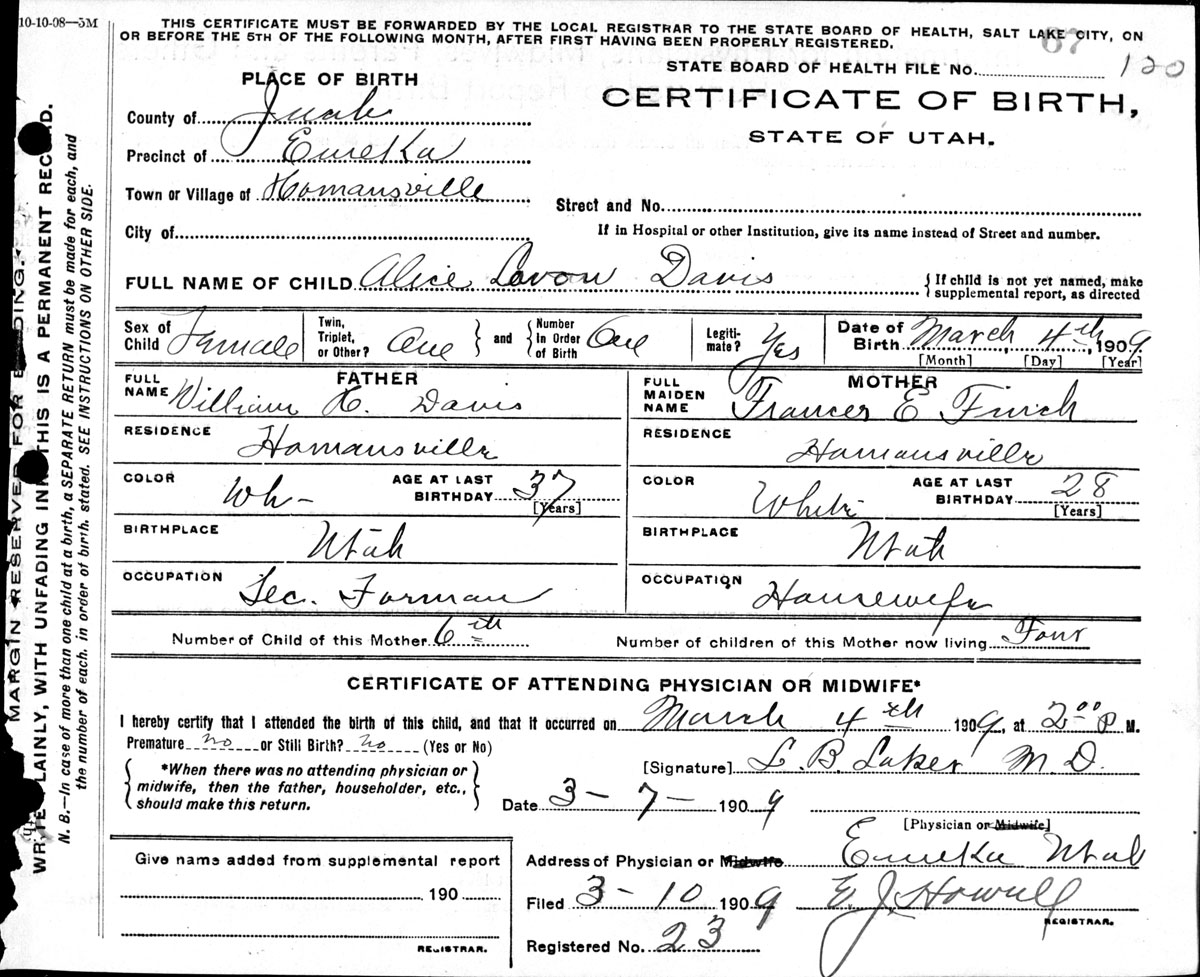 10-10-08—5M
THIS CERTIFICATE MUST BE FORWARDED BY THE LOCAL REGISTRAR TO THE STATE BOARD OF HEALTH, SALT LAKE CITY, ON
OR BEFORE THE 5TH OF THE FOLLOWING MONTH, AFTER FIRST HAVING BEEN PROPERLY REGISTERED.
67
STATE BOARD OF HEALTH FILE No. 120
CERTIFICATE OF BIRTH,
STATE OF UTAH.
PLACE OF BIRTH
County of Juab
Precinct of Eureka
Town or Village of Homansville
Street and No.
City of
If in Hospital or other Institution, give its name instead of Street and number.
FULL NAME OF CHILD Alice Lavon Davis
If child is not yet named, make
supplemental report, as directed
Sex of Child Female Twin, Triplet, or Other? One and Number In Order of Birth One Legiti-mate? Yes Date of Birth March 4th, 1909
[Month] [Day] [Year]
FATHER
FULL NAME William H. Davis
RESIDENCE Homansville
COLOR Wh- AGE AT LAST BIRTHDAY 37 [Years]
BIRTHPLACE Utah
OCCUPATION Sec. Forman
MOTHER
FULL MAIDEN NAME Frances E Finch
RESIDENCE Homansville
COLOR White AGE AT LAST BIRTHDAY 28 [Years]
BIRTHPLACE Utah
OCCUPATION Housewife
Number of Child of this Mother 6th Number of children of this Mother now living Four
CERTIFICATE OF ATTENDING PHYSICIAN OR MIDWIFE*
I hereby certify that I attended the birth of this child, and that it occurred on March 4th 1909, at 2 00 P M.
Premature no or Still Birth? no (Yes or No)
*When there was no attending physician or
midwife, then the father, householder, etc.,
should make this return.
[Signature] L. B. Laker M. D.
Date 3-7-1909
[Physician or Midwife]
Give name added from supplemental report
190
REGISTRAR.
Address of Physician or Midwife Eureka Utah
Filed 3-10 1909 E. J. Howell
REGISTRAR.
Registered No. 23
MARGIN RESERVED FOR BINDING.
WRITE PLAINLY, WITH UNFADING INK—THIS IS A PERMANENT RECORD.
N. B.—In case of more than one child at a birth, a SEPARATE RETURN must be made for each, and
the number of each, in order of birth, stated. SEE INSTRUCTIONS ON OTHER SIDE.